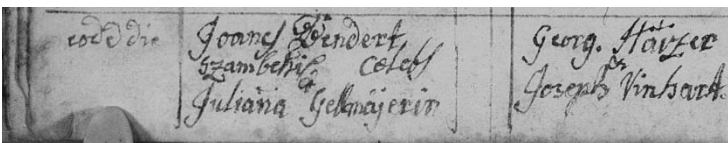 eodē die
Joanes Bendert
Szambekiē Cœlebs
&
Juliana Gellmäjerin
Georg. Härzer
&
Joseph Vinhart.